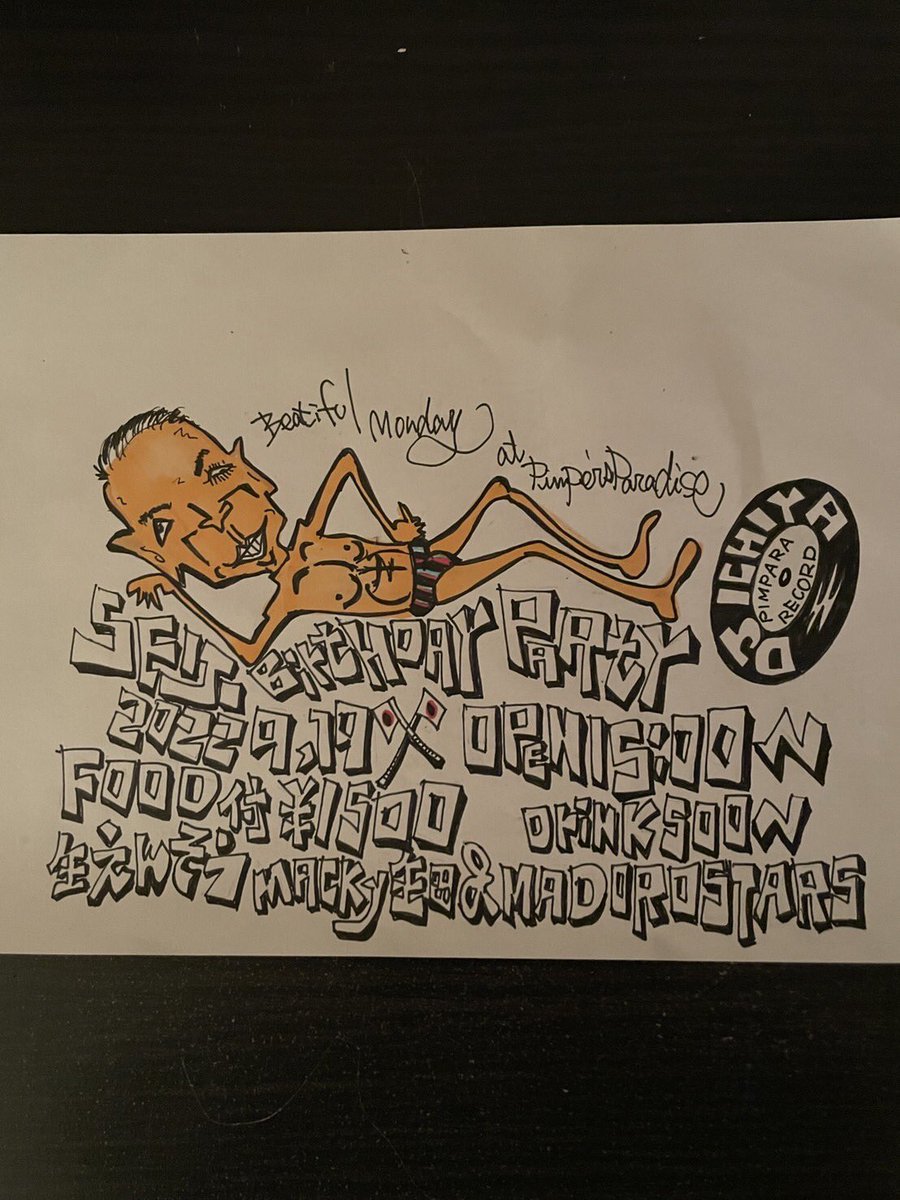 Beatiful Monday
at Pimper's Paradise
DJ ICHIYA
PIMPARA
RECORD
SEIJ. BirthDAY PARty
2022 9,19 OPEN 15:00 〜
FOOD付 ¥1500 DrINK 500 〜
生えんそう MACKy &MADOROSTARS